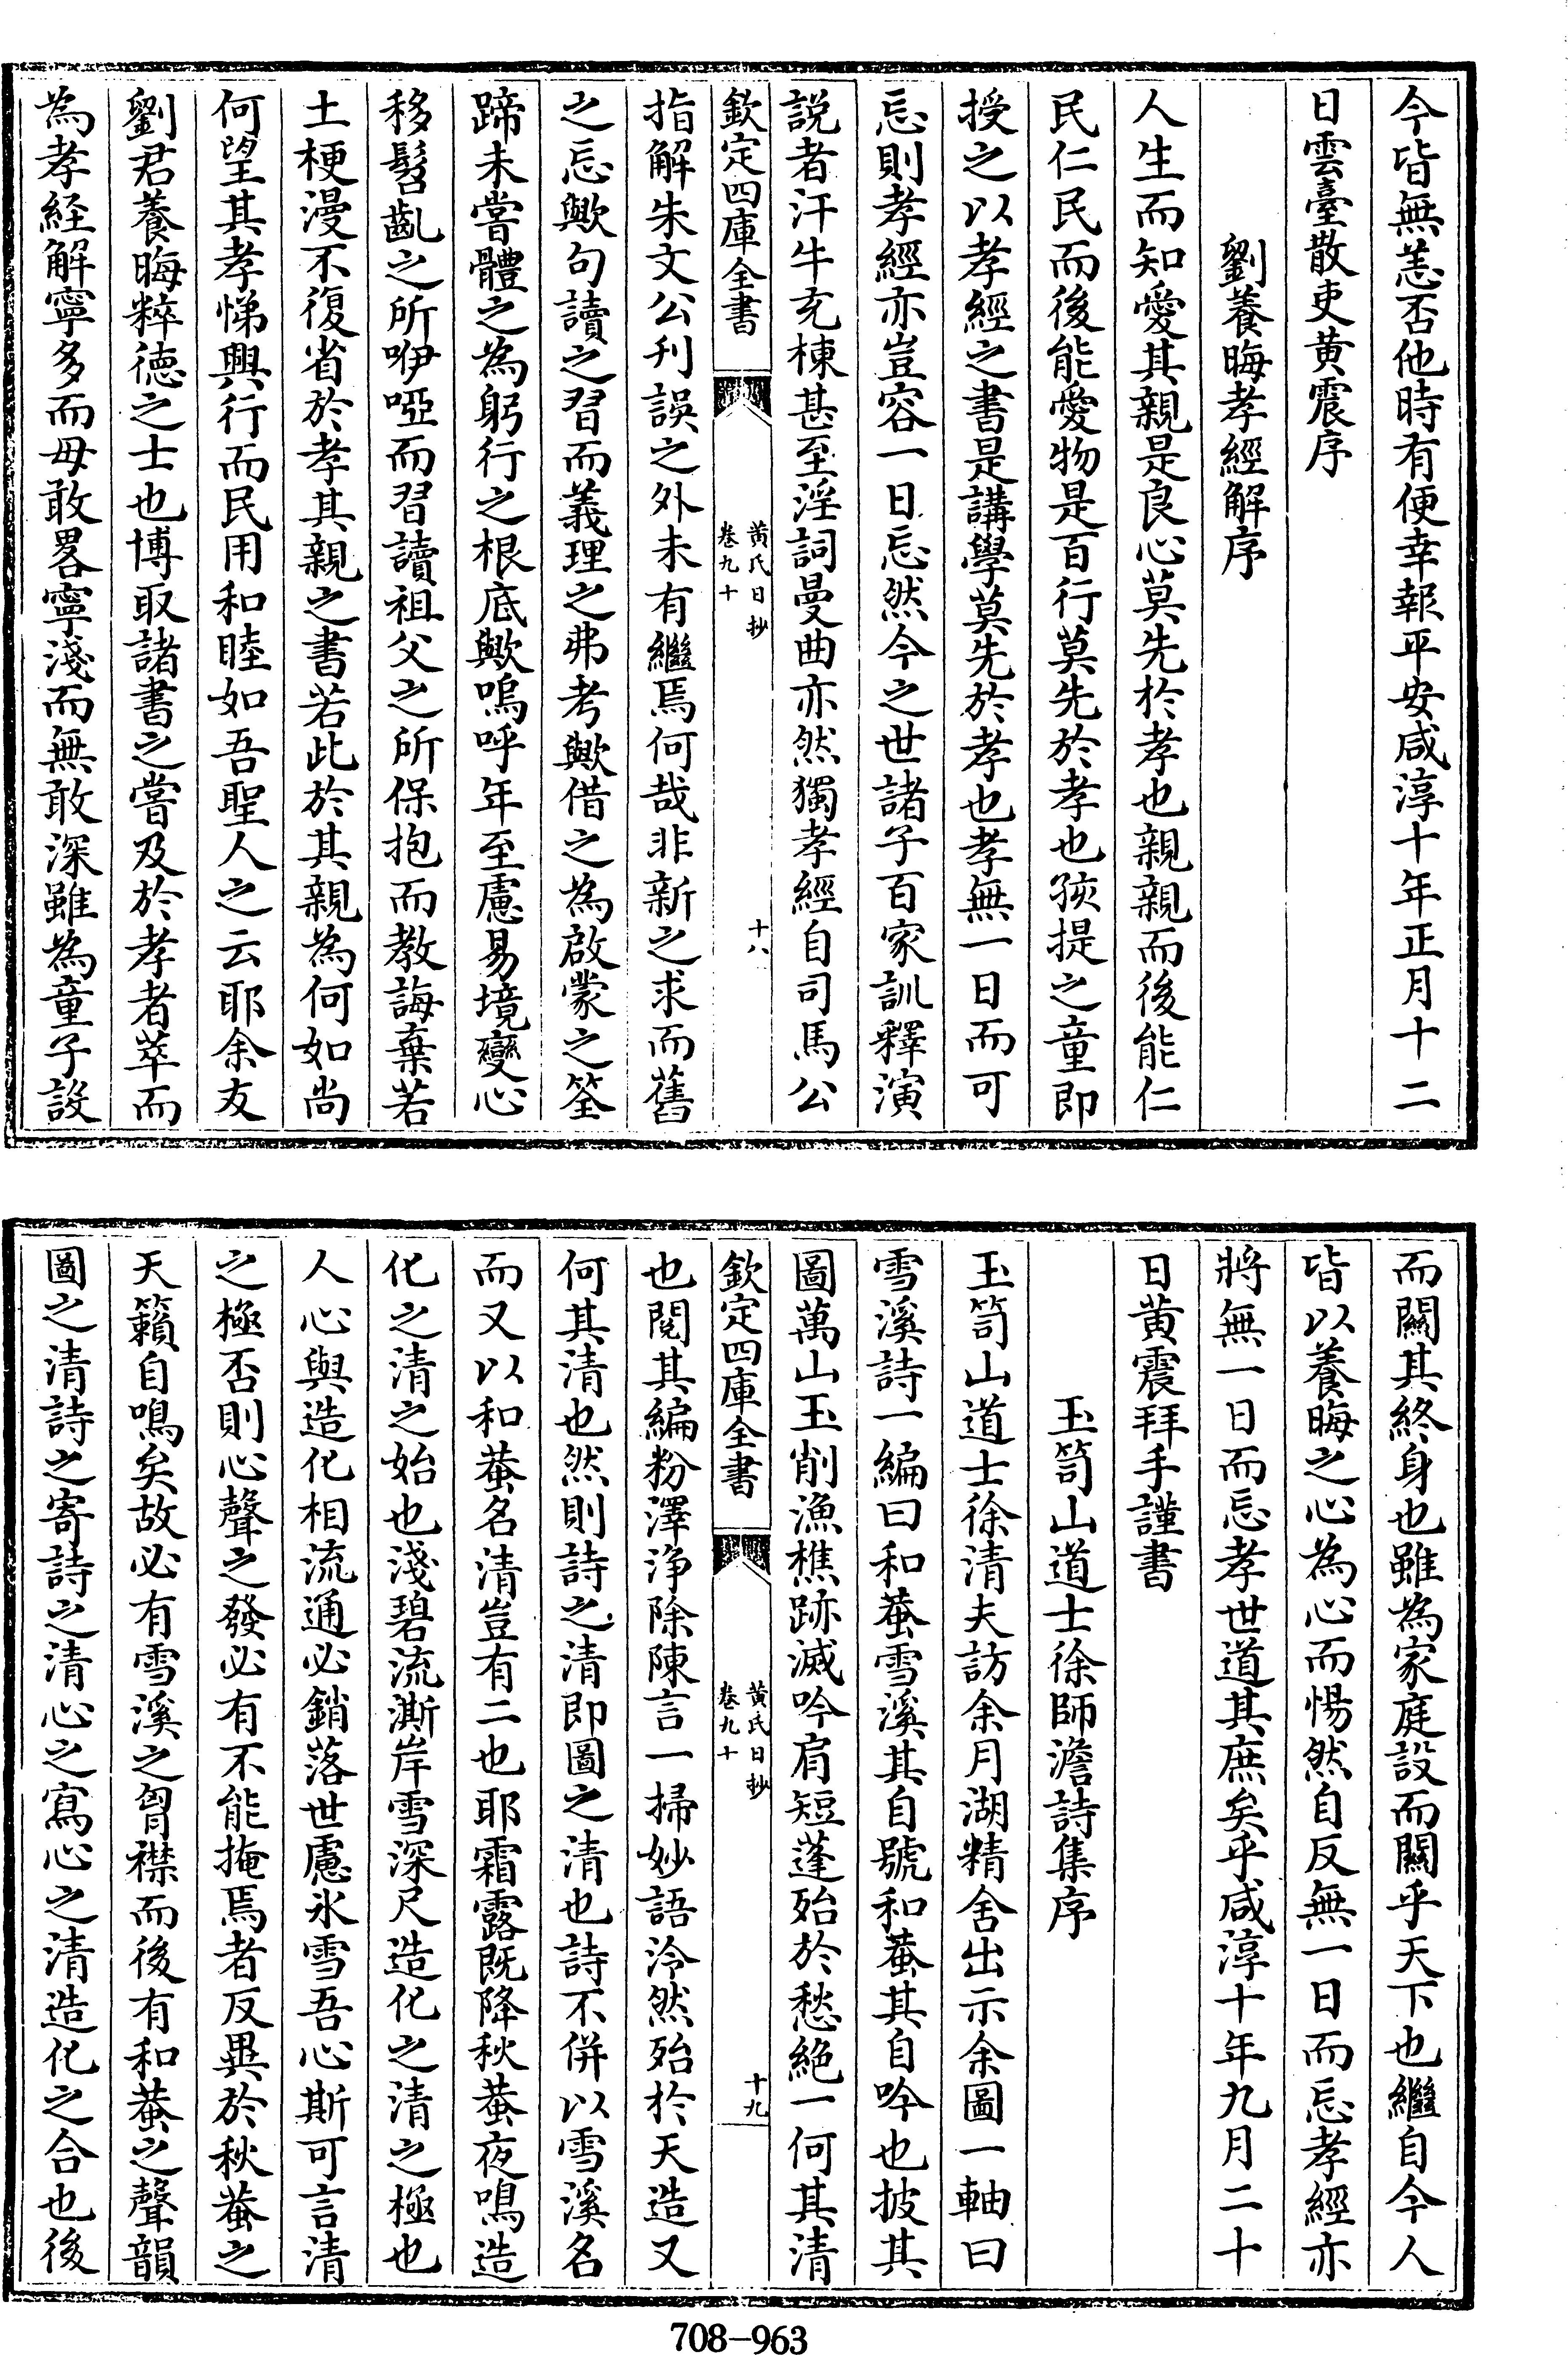 今皆無恙否他時有便幸報平安咸淳十年正月十二
日雲臺散吏黄震序
劉養晦孝經解序
人生而知愛其親是良心莫先於孝也親親而後能仁
民仁民而後能愛物是百行莫先於孝也孩提之童即
授之以孝經之書是講學莫先於孝也孝無一日而可
忘則孝經亦豈容一日忘然今之世諸子百家訓釋演
說者汗牛充棟甚至淫詞曼曲亦然獨孝經自司馬公
欽定四庫全書
黄氏日抄
卷九十
十八
指解朱文公刋誤之外未有繼焉何哉非新之求而舊
之忘歟句讀之習而義理之弗考歟借之為啟蒙之筌
蹄未嘗體之為躬行之根底歟嗚呼年至慮易境變心
移髫齔之所咿啞而習讀祖父之所保抱而教誨棄若
土梗漫不復省於孝其親之書若此於其親為何如尚
何望其孝悌興行而民用和睦如吾聖人之云耶余友
劉君養晦粹徳之士也博取諸書之嘗及於孝者萃而
為孝経解寧多而毋敢畧寧淺而無敢深雖為童子設
而關其終身也雖為家庭設而關乎天下也繼自今人
皆以養晦之心為心而惕然自反無一日而忘孝經亦
將無一日而忘孝世道其庶矣乎咸淳十年九月二十
日黄震拜手謹書
玉笥山道士徐師澹詩集序
玉笥山道士徐清夫訪余月湖精舍出示余圖一軸曰
雪溪詩一編曰和蛬雪溪其自號和蛬其自吟也披其
圖萬山玉削漁樵跡滅吟肩短蓬殆於愁絶一何其清
欽定四庫全書
黄氏日抄
卷九十
十九
也閱其編粉澤浄除陳言一掃妙語泠然殆於天造又
何其清也然則詩之清即圖之清也詩不併以雪溪名
而又以和蛬名清豈有二也耶霜露既降秋蛬夜鳴造
化之清之始也淺碧流澌岸雪深尺造化之清之極也
人心與造化相流通必銷落世慮氷雪吾心斯可言清
之極否則心聲之發必有不能掩焉者反異於秋蛬之
天籟自鳴矣故必有雪溪之胷襟而後有和蛬之聲韻
圖之清詩之寄詩之清心之寫心之清造化之合也後
708-963